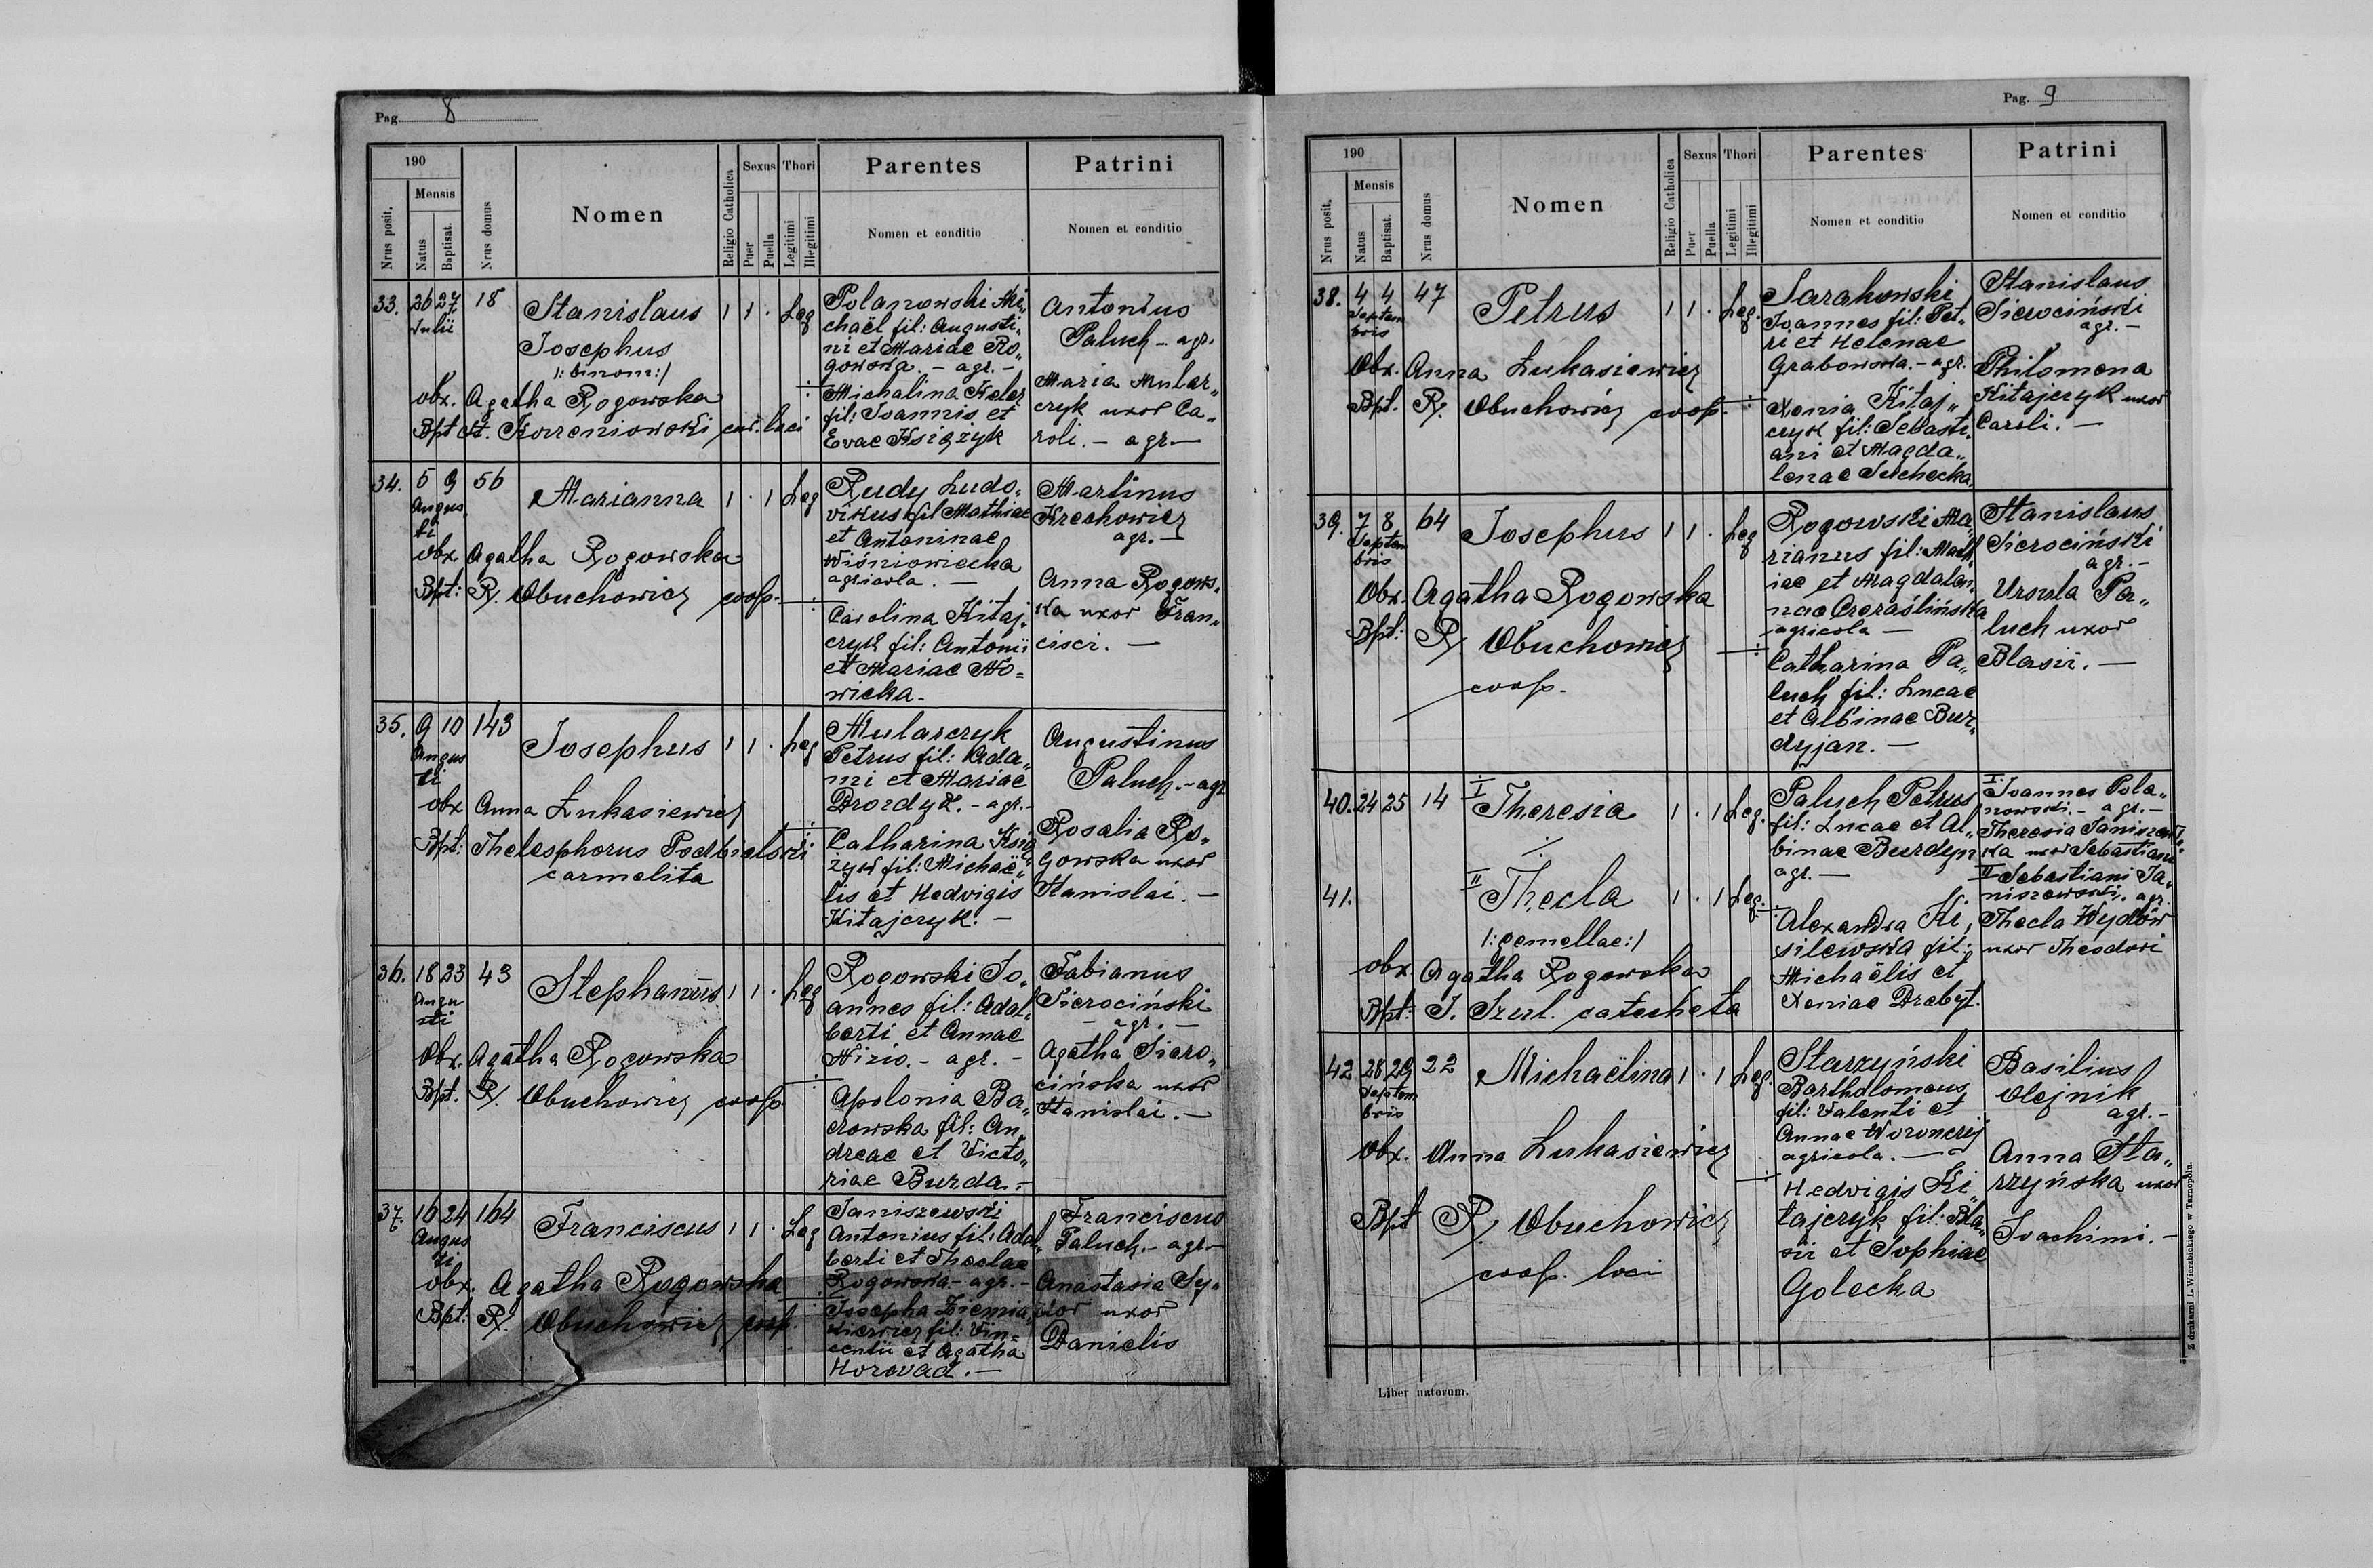 Pag. 8
190
Nrus posit.
Mensis
Natus
Baptisat.
Nrus domus
Nomen
Religio Catholica
Sexus
Puer
Puella
Thori
Legitimi
Illegitimi
Parentes
Nomen et conditio
Patrini
Nomen et conditio
33. 26 27 18 Stanislaus 1 1 . Leg
Julii
Josephus
/: binom:/
obx. Agatha Rogowska
Bpt St. Korzeniowski cur. loci
Polanowski Mi„
chaël fil: Augusti„
ni et Mariae Ro„
gowska. - agr. -
Michalina Heler
fil: Ioannis et
Evae Książyk
Antonius
Paluch - agr.
Maria Mular„
czyk uxor Ca„
roli. - agr -
34. 5 9 56 Marianna 1 . 1 Leg
Augus„
ti
obx Agatha Rogowska
Bpt: R. Obuchowicz coop.
Rudy Ludo„
vikus fil Mathiae
et Antoninae
Wiśniowiecka
agricola. -
Carolina Kitaj„
czyk fil: Antonii
et Mariae No=
wicka -
Martinus
Krechowicz
agr. -
Anna Rogows„
ka uxor Fran„
cisci. -
35. 9 10 143 Josephus 1 1 . Leg
Augus
ti
obx Anna Łukasiewicz
Bpt: Thelesphorus Podbielski
carmelita
Mularczyk
Petrus fil: Ada„
mi et Mariae
Drozdyk. - agr. -
Catharina Ksią„
żyk fil: Michaë„
lis et Hedvigis
Kitajczyk. -
Augustinus
Paluch. - agr
Rosalia Ro„
gowska uxor
Stanislai. -
36. 18 23 43 Stephanus 1 1 . Leg
Augu
sti
Obx. Agatha Rogowska
Bpt. R. Obuchowicz coop
Rogowski Jo„
annes fil: Adal„
berti et Annae
Hizio. - agr. -
Apolonia Ba„
rowska fil: An„
dreae et Victo„
riae Burda. -
Fabianus
Sierociński
- agr. -
Agatha Siero„
cińska uxor
Stanislai. -
37. 16 24 164 Franciscus 1 1 . Leg
Augus
ti
obx. Agatha Rogowska
Bpt: R. Obuchowicz coop.
Janiszewski
Antonius fil: Adal„
berti et Theclae
Rogowska - agr. -
Josepha Ziemia„
kiewicz fil: Vin=
centii et Agatha
Horovad. -
Franciscus
Paluch. - agr. -
Anastasia Sy„
kor uxor
Danielis
Pag. 9
190
Nrus posit.
Mensis
Natus
Baptisat.
Nrus domus
Nomen
Religio Catholica
Sexus
Puer
Puella
Thori
Legitimi
Illegitimi
Parentes
Nomen et conditio
Patrini
Nomen et conditio
38. 4 4 47 Petrus 1 1 . Leg.
Septem
bris
Obx. Anna Łukasiewicz
Bpt. R. Obuchowicz coop.
Sarakowski
Ioannes fil: Pet„
ri et Helenae
Grabowska. - agr.
Xenia Kitaj„
czyk fil: Sebasti„
ani et Magda„
lenae Suchecka.
Stanislaus
Sierociński
agr. -
Philomena
Kitajczyk uxor
Caroli. -
39. 7 8 64 Josephus 1 1 . Leg
Septem
bris
Obx. Agatha Rogowska
Bpt: R. Obuchowicz
coop.
Rogowski Ma„
rianus fil: Math„
iae et Magdalen„
nae Czeraślińska
agricola -
Catharina Pa„
luch fil: Lucae
et Albinae Bur„
dyjan. -
Stanislaus
Sierociński
agr. -
Ursula Pa„
luch uxor
Blasii. -
40. 24 25 14 I Theresia 1 . 1 Leg.
41. II Thecla 1 . 1 Leg.
/: gemellae:/
obx Agatha Rogowska
Bpt: J. Szul. catecheta
Paluch Petrus
fil: Lucae et Al„
binae Burdyn
agr. -
Alexandra Ki„
silewska fil:
Michaëlis et
Xeniae Drebyt.
I. Ioannes Pola„
nowski. - agr. -
Theresia Janiszews„
ka uxor Sebastiani
II Sebastiani Ja„
niszewski. agr.
Thecla Wydów
uxor Theodori
42 28 29 22 Michaëlina 1 . 1 Leg.
Septem
bris
Obx. Anna Łukasiewicz
Bpt R. Obuchowicz
coop. loci
Starzyński
Bartholomeus
fil: Valenti et
Annae Woronczy
agricola. -
Hedvigis Ki„
tajczyk fil: Bla„
sii et Sophiae
Golecka
Basilius
Olejnik
agr. -
Anna Sta„
rzyńska uxor
Ioachimi. -
Liber natorum.
Z drukarni L. Wierzbickiego w Tarnopolu.